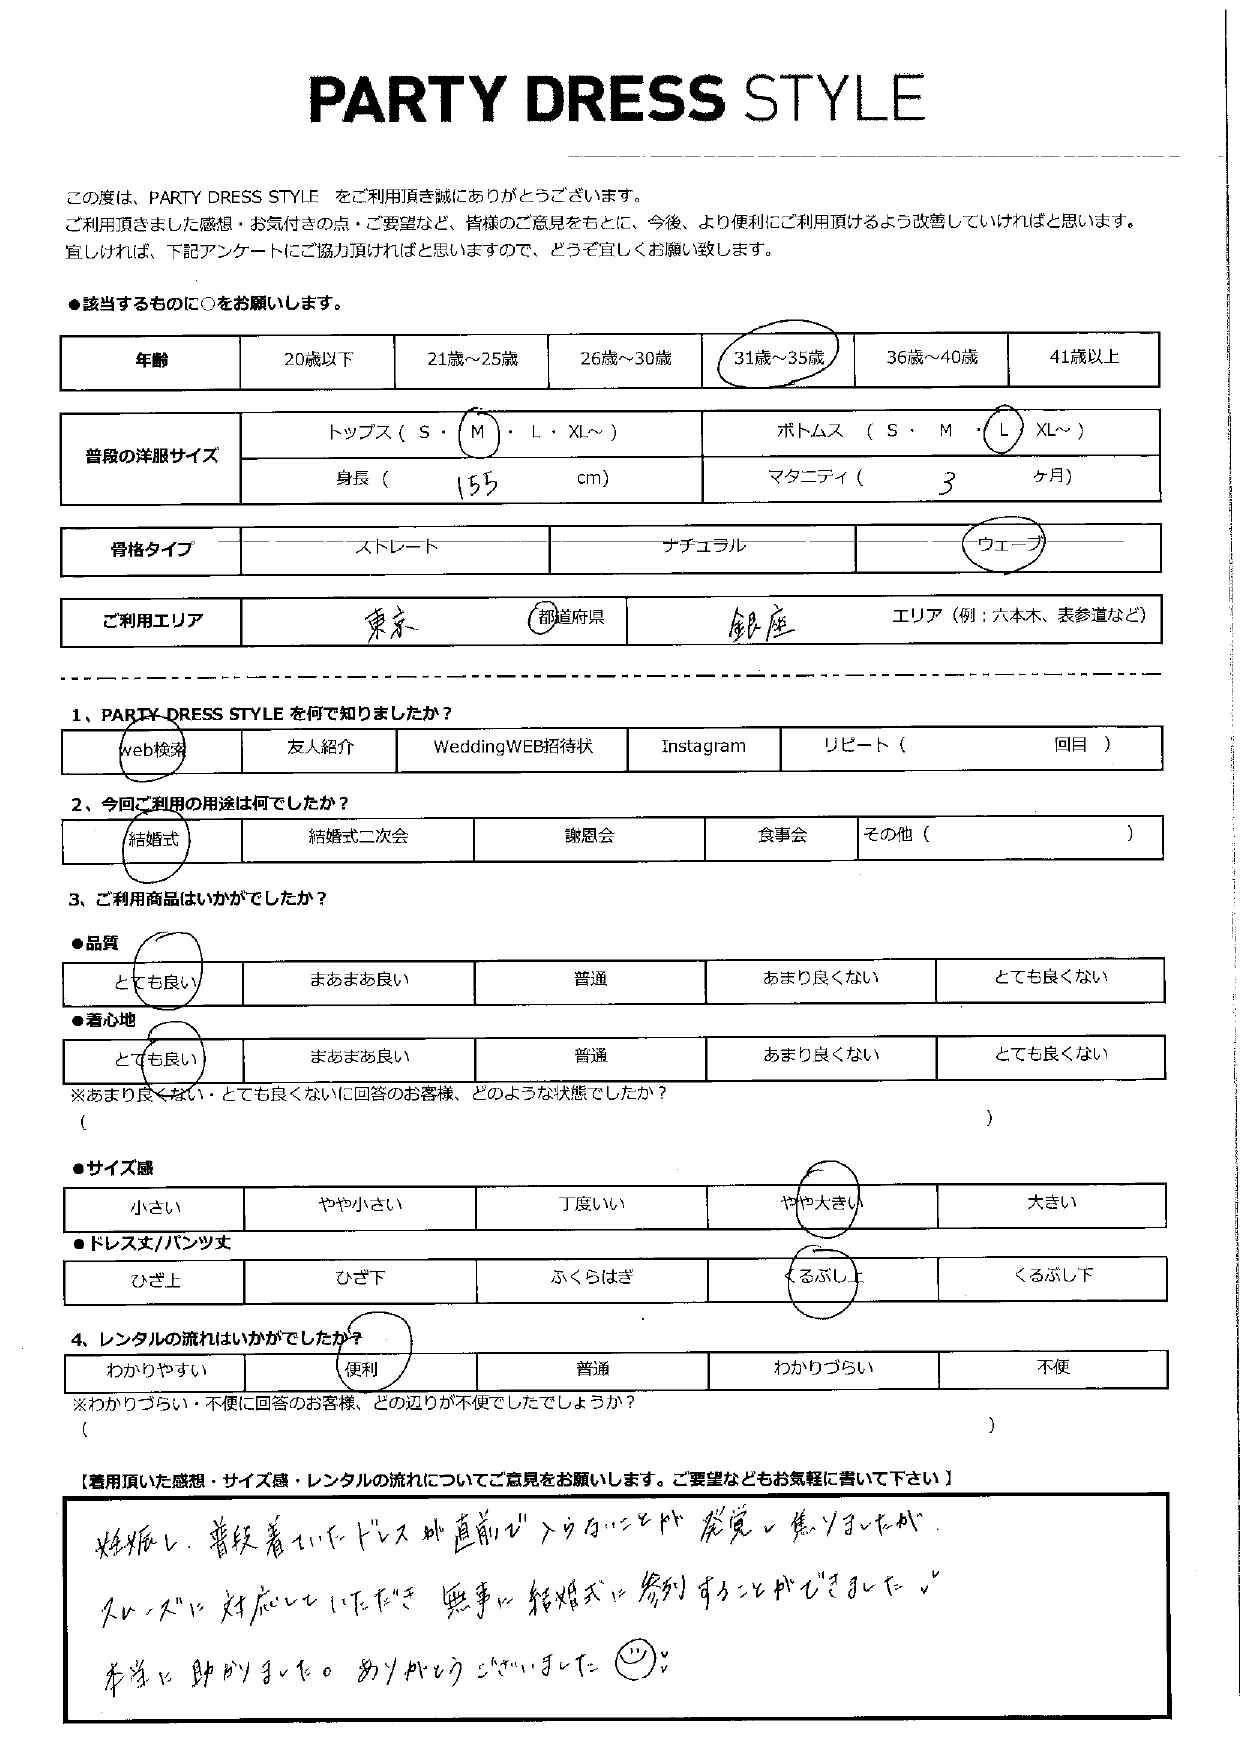 PARTY DRESS STYLE
この度は、PARTY DRESS STYLE をご利用頂き誠にありがとうございます。
ご利用頂きました感想・お気付きの点・ご要望など、皆様のご意見をもとに、今後、より便利にご利用頂けるよう改善していければと思います。
宜しければ、下記アンケートにご協力頂ければと思いますので、どうぞ宜しくお願い致します。
●該当するものに○をお願いします。
年齢 20歳以下 21歳～25歳 26歳～30歳 31歳～35歳 36歳～40歳 41歳以上
普段の洋服サイズ トップス ( S ・ M ・ L ・ XL～ ) ボトムス ( S ・ M ・ L XL～ )
身長 ( 155 cm) マタニティ ( 3 ヶ月)
骨格タイプ ストレート ナチュラル ウェーブ
ご利用エリア 東京 都道府県 銀座 エリア（例：六本木、表参道など）
1、PARTY DRESS STYLE を何で知りましたか？
web検索 友人紹介 WeddingWEB招待状 Instagram リピート ( 回目 )
2、今回ご利用の用途は何でしたか？
結婚式 結婚式二次会 謝恩会 食事会 その他 ( )
3、ご利用商品はいかがでしたか？
●品質
とても良い まあまあ良い 普通 あまり良くない とても良くない
●着心地
とても良い まあまあ良い 普通 あまり良くない とても良くない
※あまり良くない・とても良くないに回答のお客様、どのような状態でしたか？
( )
●サイズ感
小さい やや小さい 丁度いい やや大きい 大きい
●ドレス丈/パンツ丈
ひざ上 ひざ下 ふくらはぎ くるぶし上 くるぶし下
4、レンタルの流れはいかがでしたか？
わかりやすい 便利 普通 わかりづらい 不便
※わかりづらい・不便に回答のお客様、どの辺りが不便でしたでしょうか？
( )
【着用頂いた感想・サイズ感・レンタルの流れについてご意見をお願いします。ご要望などもお気軽に書いて下さい】
妊娠し、普段着ていたドレスが直前で入らないことが発覚し焦りましたが、
スムーズに対応していただき無事に結婚式に参列することができました
本当に助かりました。ありがとうございました